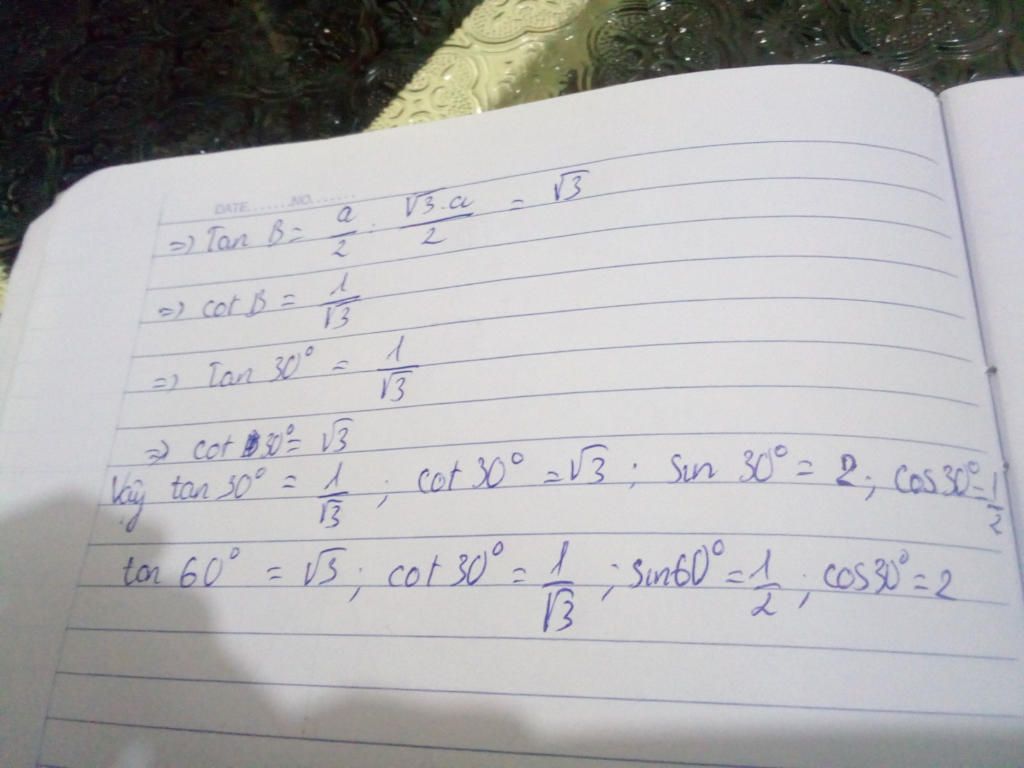 DATE.......NO.......
=> Tan B = a/2 : √3.a/2 = √3
=> cot B = 1/√3
=> Tan 30° = 1/√3
=> cot 30° = √3
Vậy tan 30° = 1/√3 ; cot 30° = √3 ; sin 30° = 2 ; cos 30° = 1/2
tan 60° = √3 ; cot 30° = 1/√3 ; sin 60° = 1/2 ; cos 30° = 2